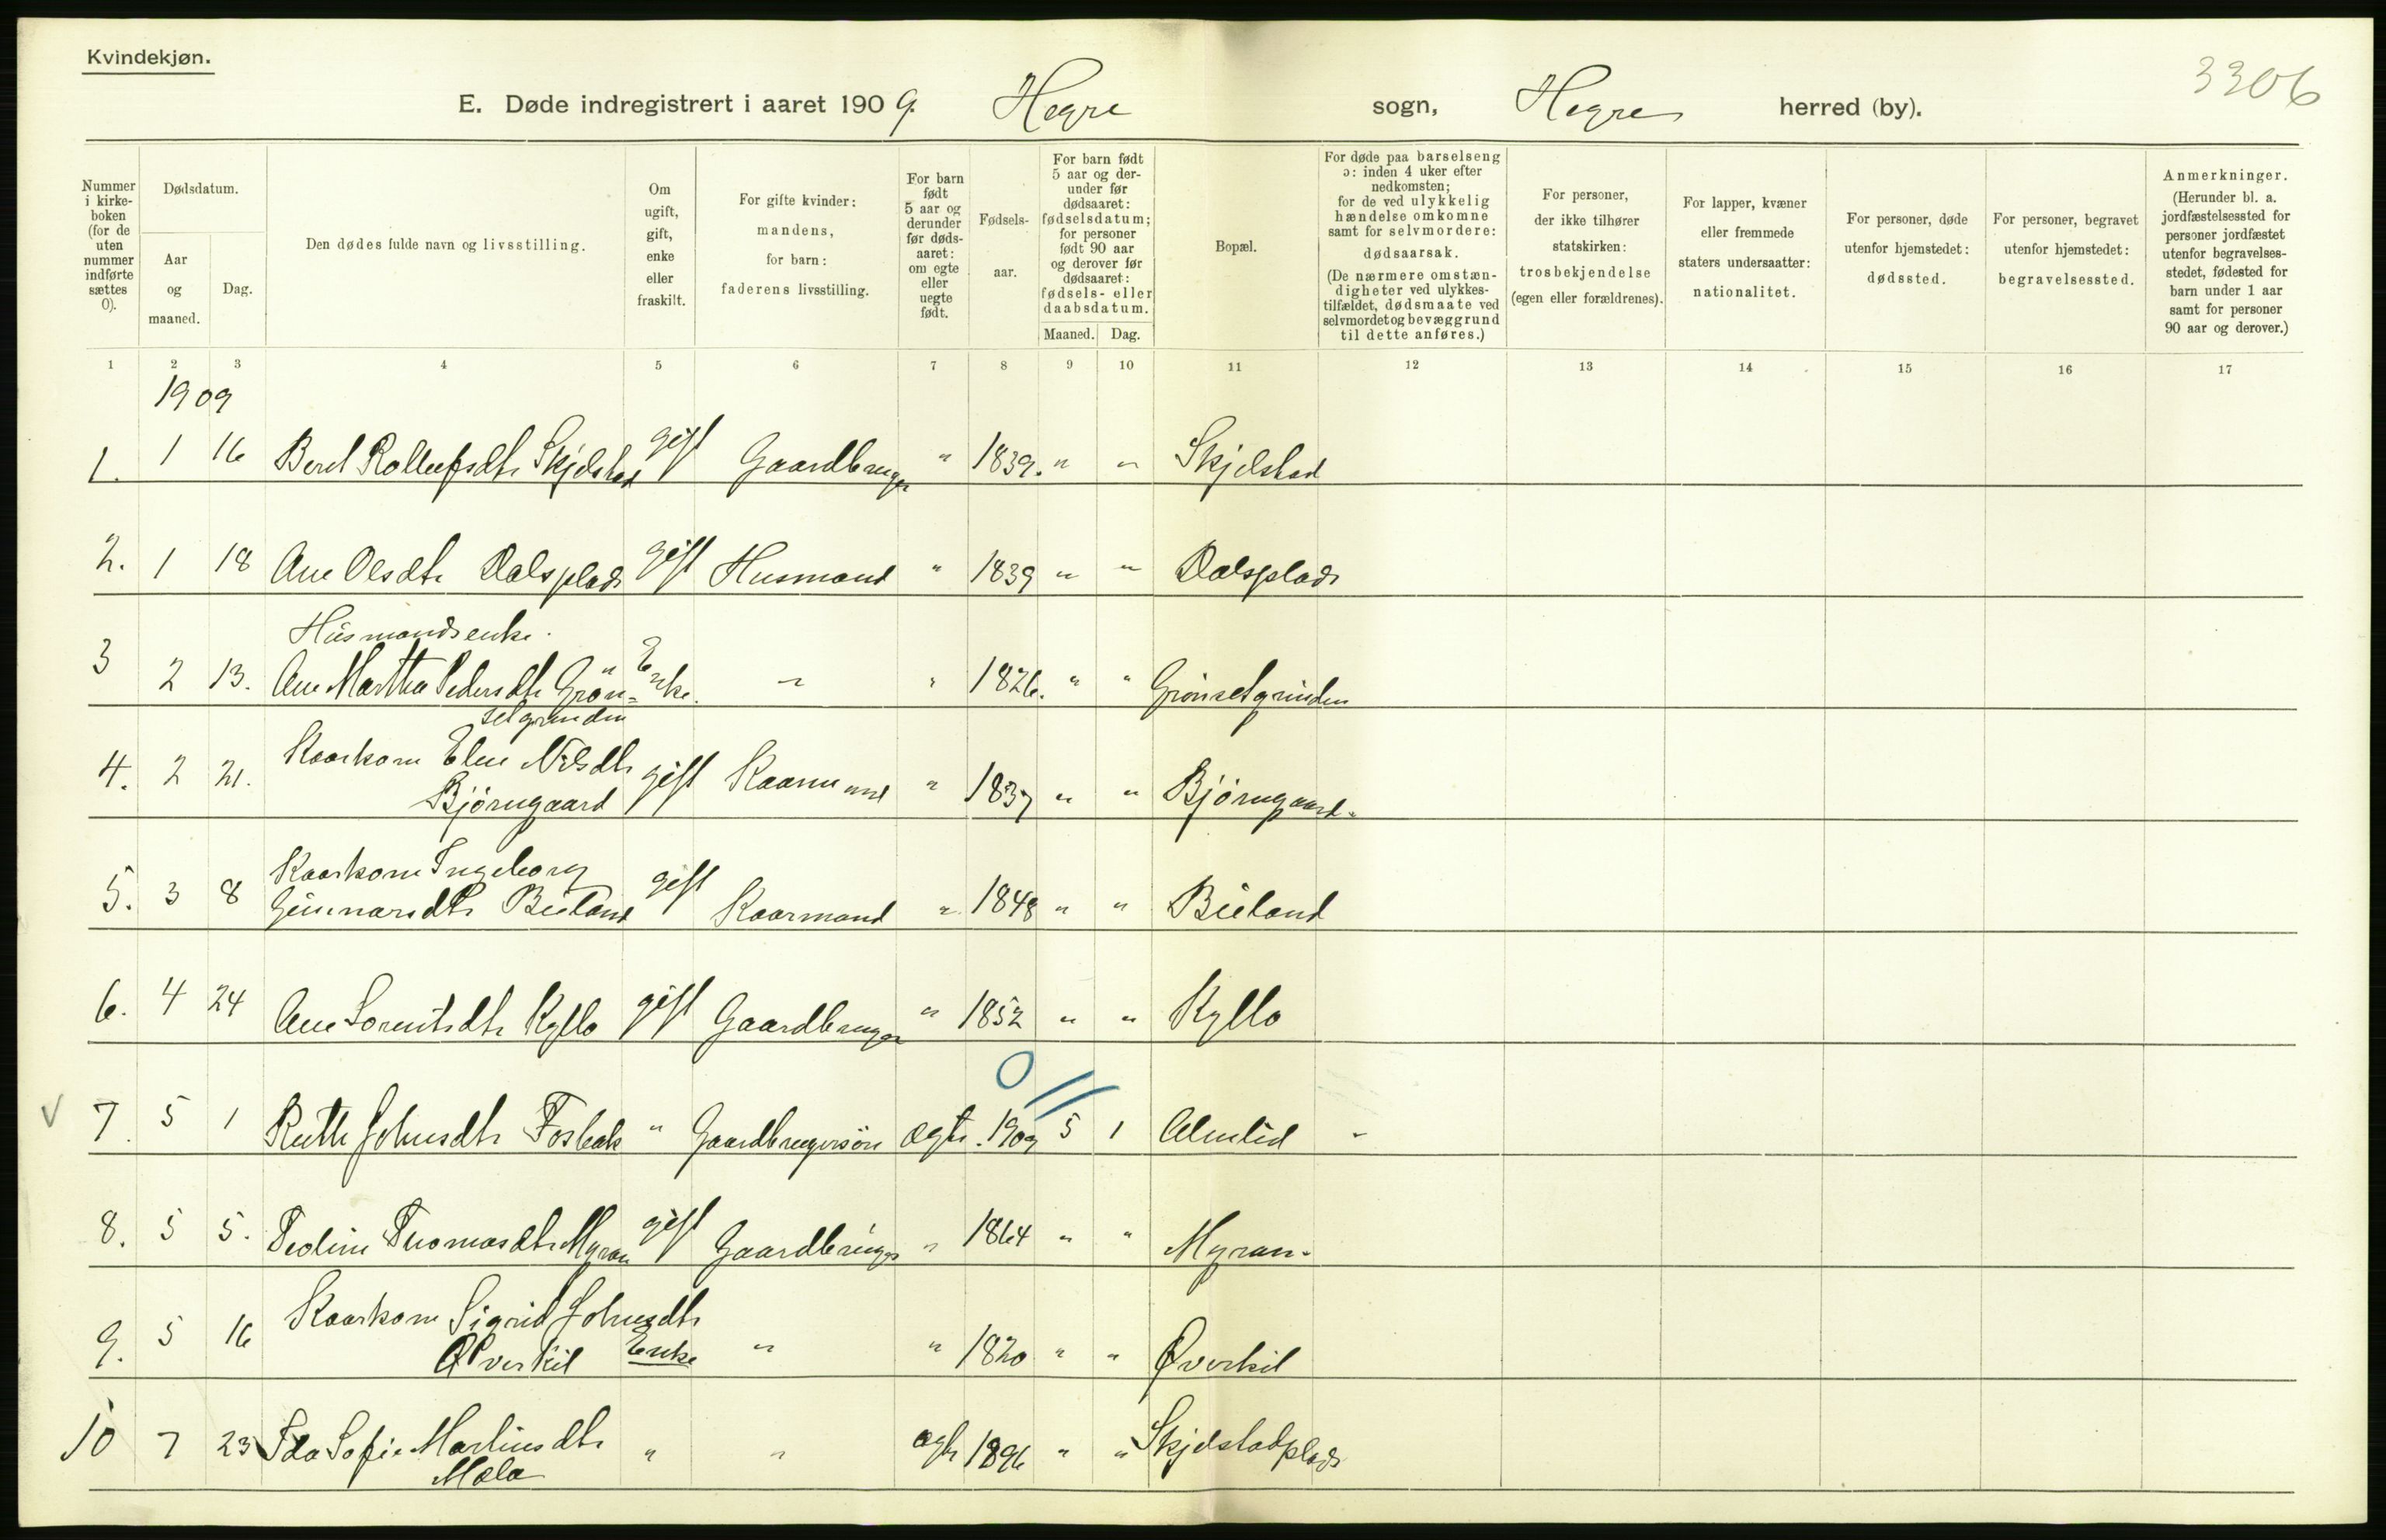 Kvindekjøn.
3306
E. Døde indregistrert i aaret 1909. Hegre sogn, Hegre herred (by).
Nummer i kirke-boken (for de uten nummer indførte sættes 0).
Dødsdatum.
Aar og maaned.
Dag.
Den dødes fulde navn og livsstilling.
Om ugift, gift, enke eller fraskilt.
For gifte kvinder: mandens, for barn: faderens livsstilling.
For barn født 5 aar og derunder før døds-aaret: om egte eller uegte født.
Fødsels-aar.
For barn født 5 aar og der-under før dødsaaret: fødselsdatum; for personer født 90 aar og derover før dødsaaret: fødsels- eller daabsdatum.
Maaned. Dag.
Bopæl.
For døde paa barselseng ɔ: inden 4 uker efter nedkomsten; for de ved ulykkelig hændelse omkomne samt for selvmordere: dødsaarsak. (De nærmere omstæn-digheter ved ulykkes-tilfældet, dødsmaate ved selvmordet og bevæggrund til dette anføres.)
For personer, der ikke tilhører statskirken: trosbekjendelse (egen eller forældrenes).
For lapper, kvæner eller fremmede staters undersaatter: nationalitet.
For personer, døde utenfor hjemstedet: dødssted.
For personer, begravet utenfor hjemstedet: begravelsessted.
Anmerkninger. (Herunder bl. a. jordfæstelsessted for personer jordfæstet utenfor begravelses-stedet, fødested for barn under 1 aar samt for personer 90 aar og derover.)
1 2 3 4 5 6 7 8 9 10 11 12 13 14 15 16 17
1909
1. 1 16 Beret Rollefsdtr Skjelstad gift Gaardbruger " 1839. " " Skjelstad
2. 1 18 Ane Olsdtr Dalsplads gift Husmand " 1839 " " Dalsplads
Husmandsenke.
3 2 13. Ane Martha Pedersdtr Grøn= Enke. " " 1826. " " Grønsetgrinden
setgrinden
4. 2 21. Kaarkone Elen Nilsdtr gift Kaarmand " 1837 " " Bjørngaard.
Bjørngaard
Kaarkone Ingeborg
5. 3 8 Gunnarsdtr Buland gift Kaarmand " 1848 " " Buland
6. 4 24 Ane Lorentsdtr Kyllo gift Gaardbruger " 1852 " " Kyllo
0 //
V 7. 5 1 Ruth Johnsdtr Fosbak " Gaardbrugersøn ægte. 1909 5 1 Almlid "
8. 5 5. Pedine Thomasdtr Myran gift Gaardbruger " 1864 " " Myran.
Kaarkone Sigrid Johnsdtr
9. 5 16 Øverkil Enke " " 1820 " " Øverkil
10 7 23 Ida Sofie Martinsdtr " " ægte 1896 " " Skjelstadplads
Mælo